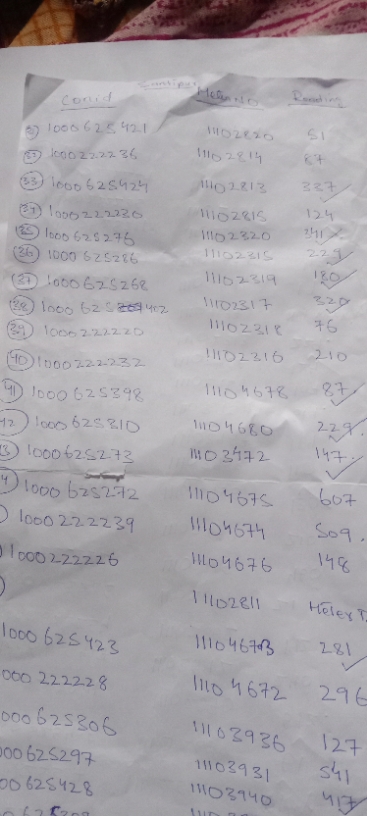 Conid Meter No Reading
1000625421 11102820 51
1000222236 11102814 87
33 1000625424 11102813 337
1000222230 11102815 124
35 1000625276 11102320 341
36 1000625286 11102315 229
37 1000625268 11102319 180
38 1000625402 11102317 320
39 1000222220 11102318 76
40 1000222232 11102316 210
41 1000625398 11104678 87
42 1000625310 11104680 229
3 1000625273 11103472 147
4 1000625272 11104675 607
1000222239 11104674 509
1000222226 11104676 148
11102811 Meter
1000625423 11104673 281
000222228 11104672 296
000625306 11103936 127
00625297 11103931 541
00625428 11103940 417